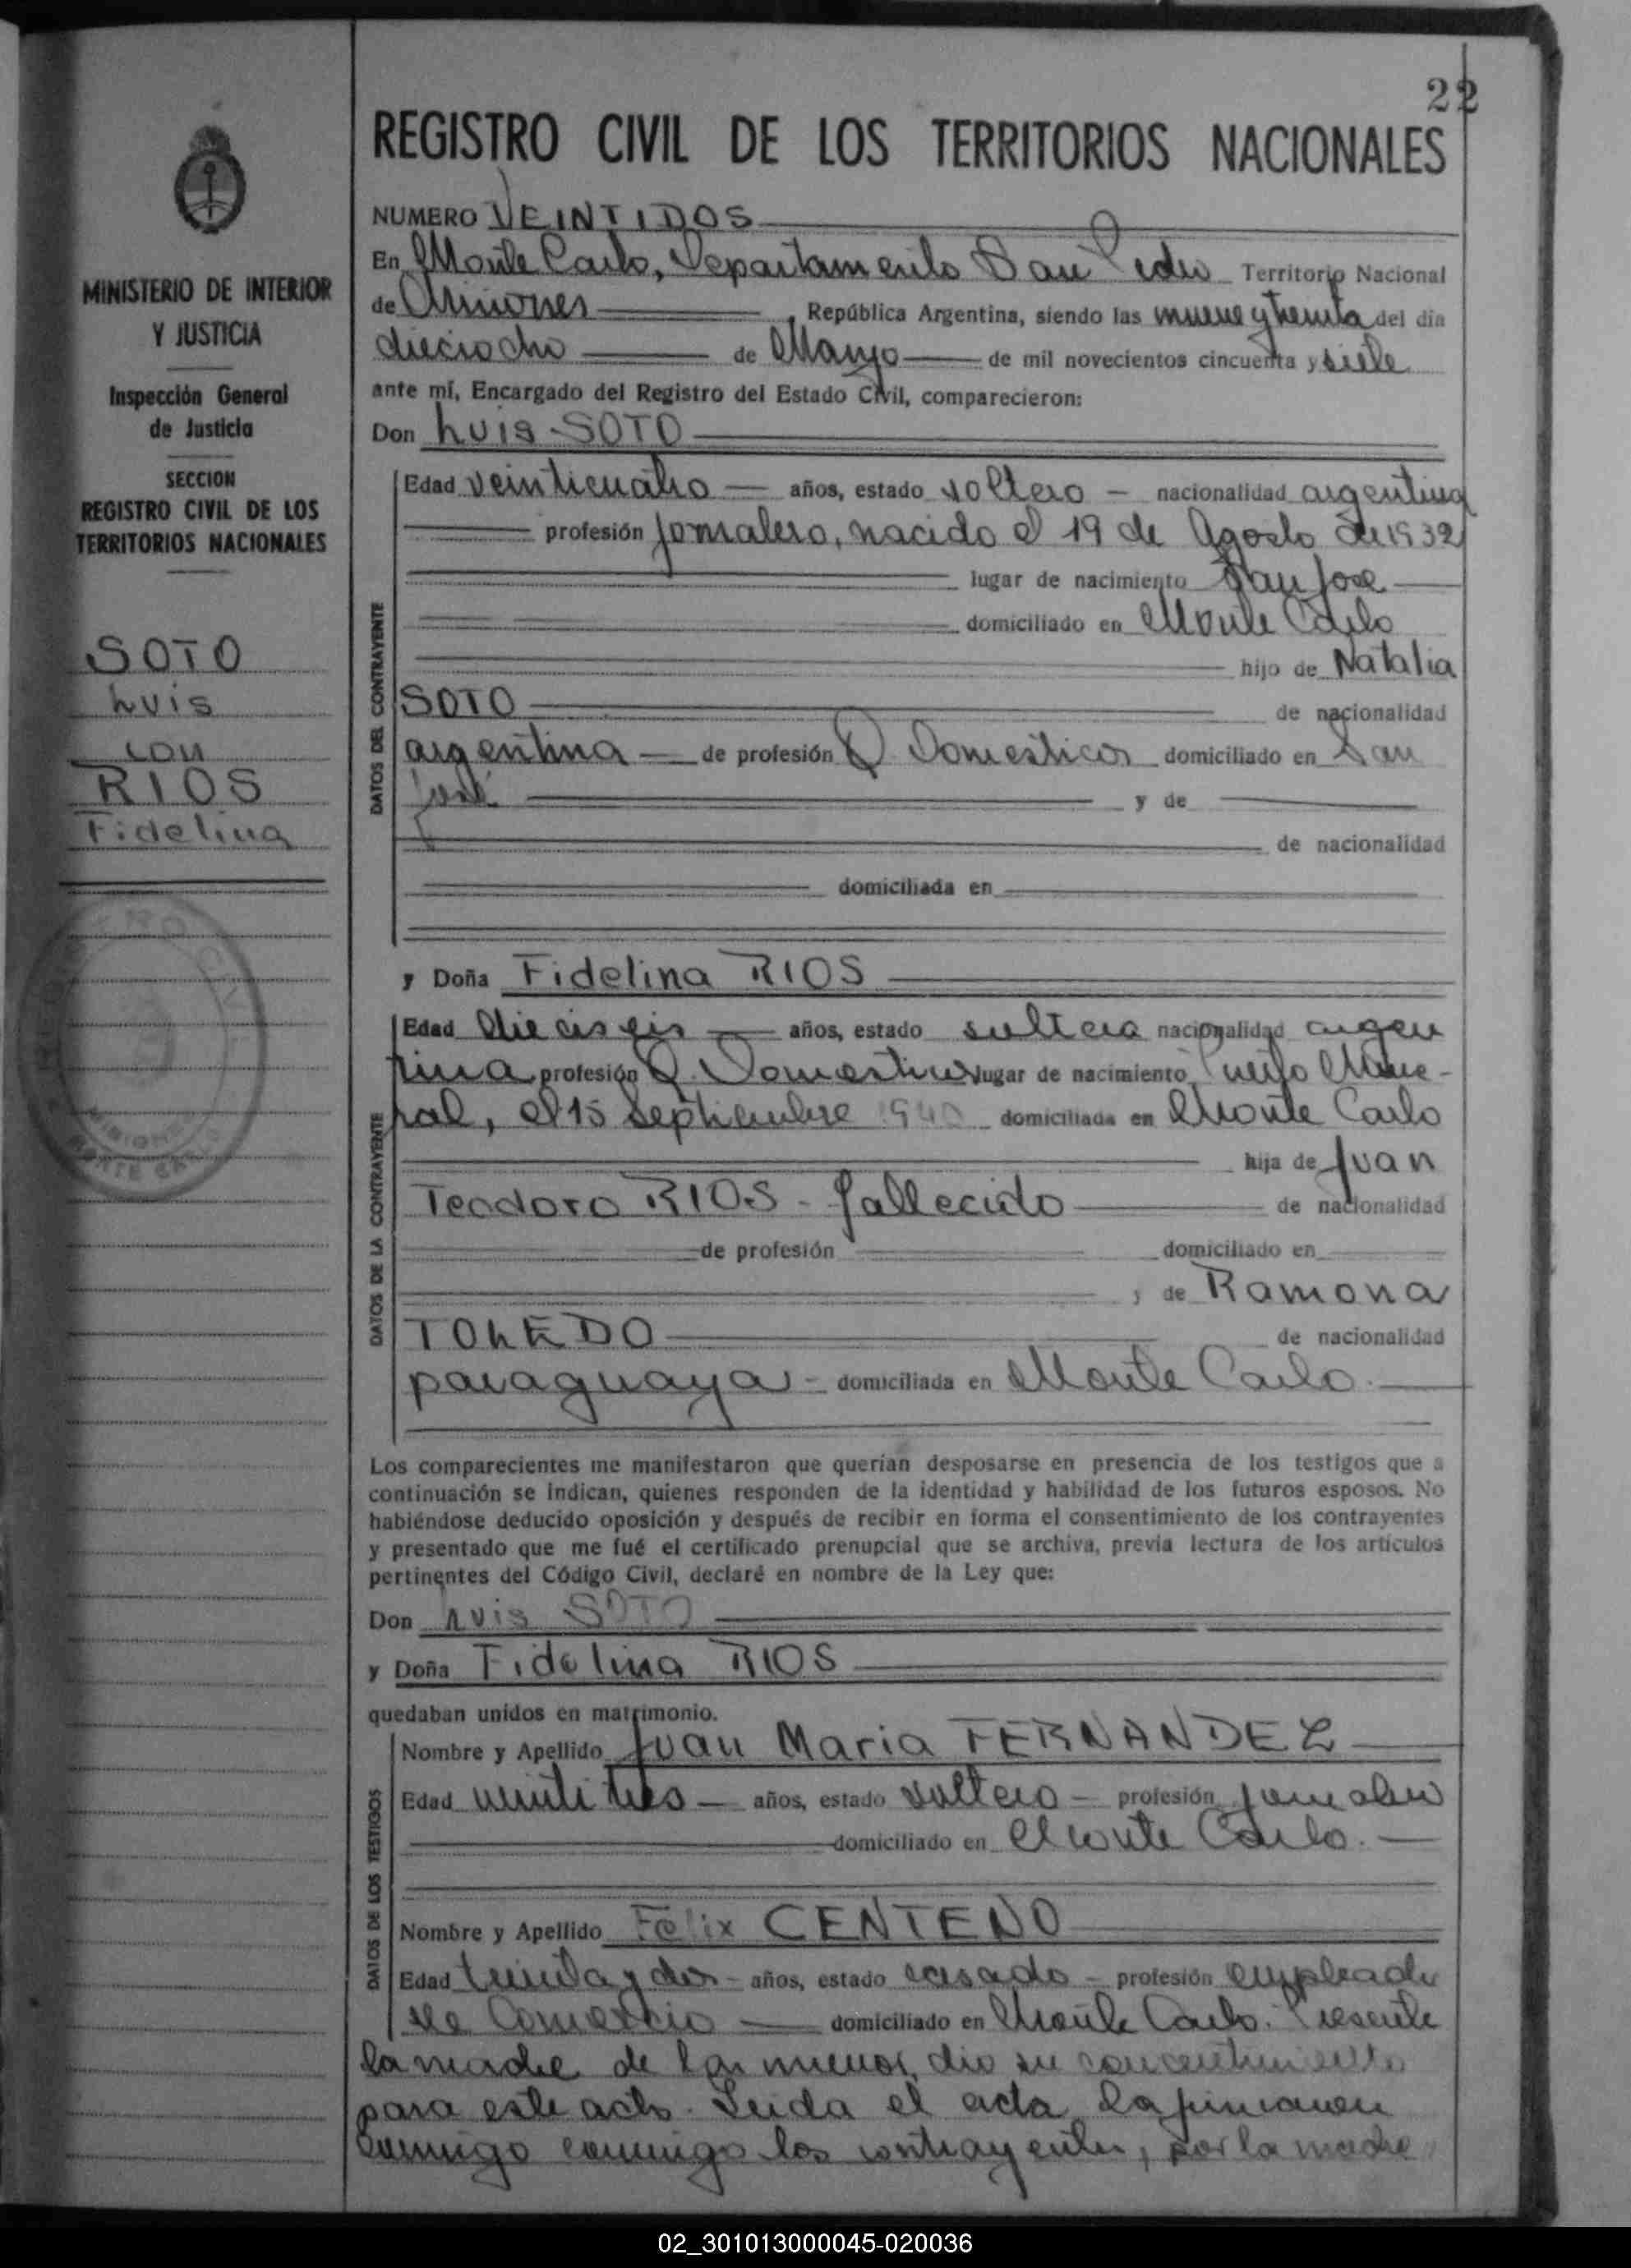 22
REGISTRO CIVIL DE LOS TERRITORIOS NACIONALES
MINISTERIO DE INTERIOR
Y JUSTICIA
Inspección General
de Justicia
SECCION
REGISTRO CIVIL DE LOS
TERRITORIOS NACIONALES
SOTO
Luis
con
RIOS
Fidelina
NUMERO VEINTIDOS
En Monte Carlo, Departamento San Pedro Territorio Nacional
de Misiones República Argentina, siendo las nueve y treinta del día
dieciocho de Mayo de mil novecientos cincuenta y siete
ante mí, Encargado del Registro del Estado Civil, comparecieron:
Don Luis SOTO
DATOS DEL CONTRAYENTE
Edad veinticuatro años, estado soltero nacionalidad argentina
profesión jornalero, nacido el 19 de Agosto de 1932
lugar de nacimiento San José
domiciliado en Monte Carlo
hijo de Natalia
SOTO de nacionalidad
argentina de profesión Q. Domesticos domiciliado en San
José y de
de nacionalidad
domiciliada en
y Doña Fidelina RIOS
DATOS DE LA CONTRAYENTE
Edad dieciseis años, estado soltera nacionalidad argen
tina profesión Q. Domesticos lugar de nacimiento Puerto Mine-
ral, el 15 Septiembre 1940 domiciliada en Monte Carlo
hija de Juan
Teodoro RIOS - fallecido de nacionalidad
de profesión domiciliado en
y de Ramona
TOLEDO de nacionalidad
paraguaya - domiciliada en Monte Carlo.
Los comparecientes me manifestaron que querían desposarse en presencia de los testigos que a
continuación se indican, quienes responden de la identidad y habilidad de los futuros esposos. No
habiéndose deducido oposición y después de recibir en forma el consentimiento de los contrayentes
y presentado que me fué el certificado prenupcial que se archiva, previa lectura de los artículos
pertinentes del Código Civil, declaré en nombre de la Ley que:
Don Luis SOTO
y Doña Fidelina RIOS
quedaban unidos en matrimonio.
DATOS DE LOS TESTIGOS
Nombre y Apellido Juan Maria FERNANDEZ
Edad veintitres años, estado soltero profesión jornalero
domiciliado en Monte Carlo.
Nombre y Apellido Felix CENTENO
Edad treinta y dos años, estado casado profesión empleado
de Comercio domiciliado en Monte Carlo. Presente
la madre de la menor, dio su consentimiento
para este acto. Leida el acta la firmaron
conmigo conmigo los contrayentes, por la madre
02_301013000045-020036